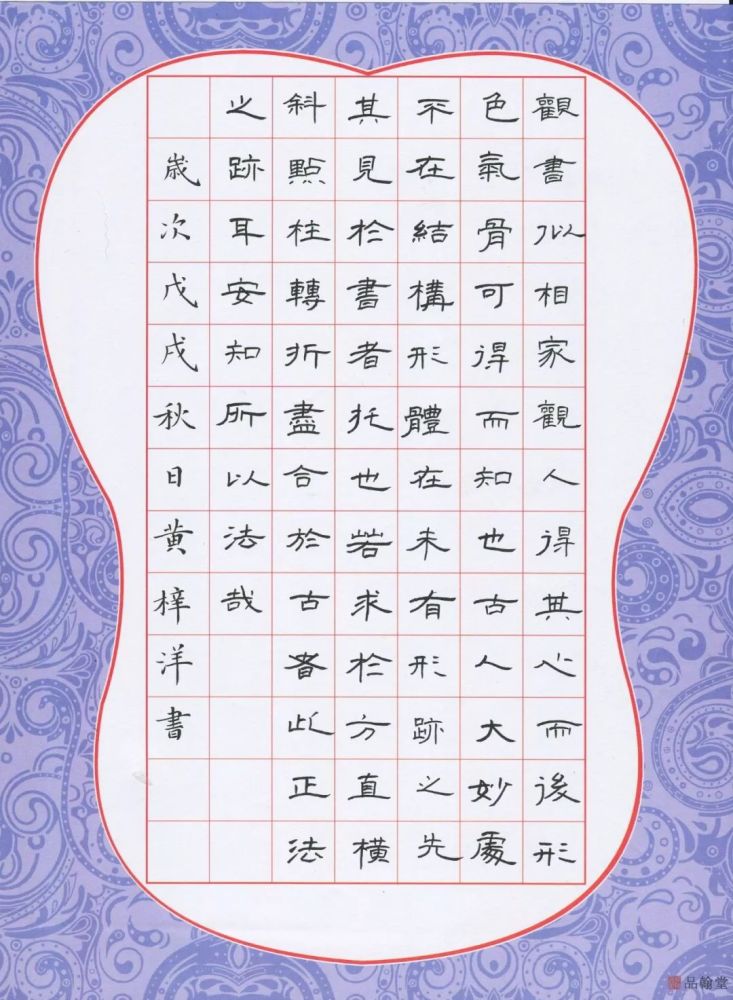 觀書似相家觀人得其心而後形
色氣骨可得而知也古人大妙處
不在結構形體在未有形跡之先
其見於書者托也若求於方直橫
斜點柱轉折盡合於古者此正法
之跡耳安知所以法哉
歲次戊戌秋日黃梓洋書
品翰堂